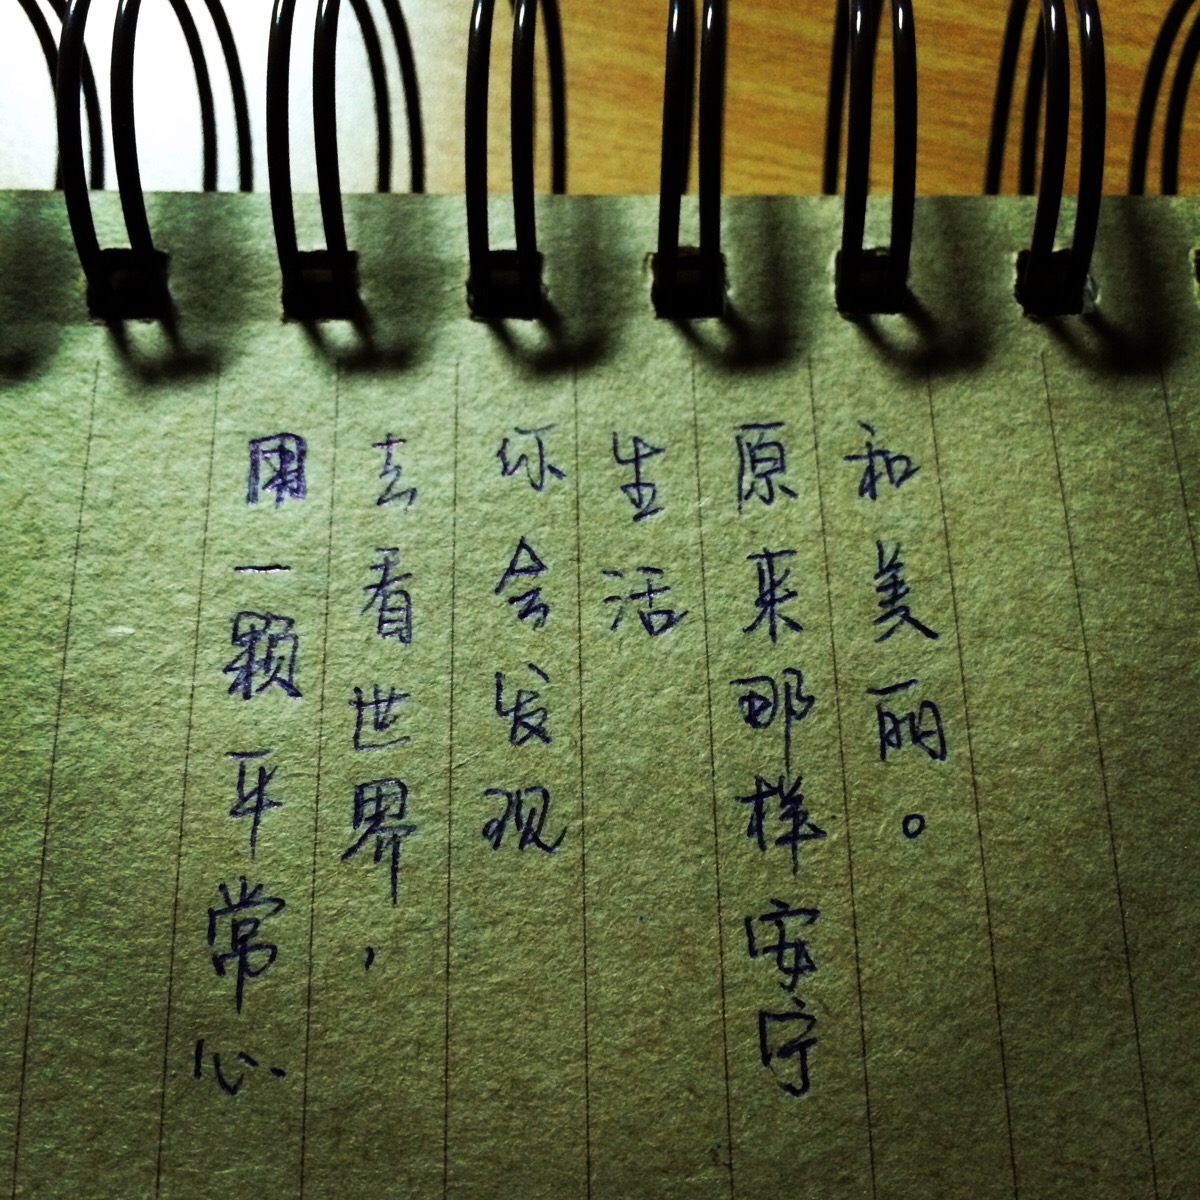 用一颗平常心
去看世界，
你会发现
生活
原来那样安宁
和美丽。